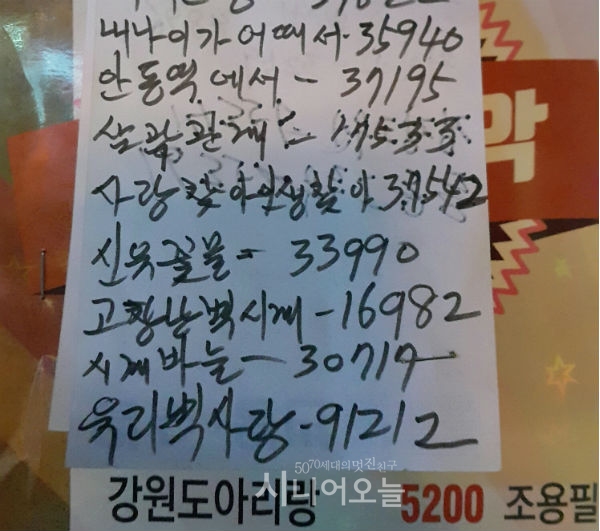 내나이가어때서-35940
안동역에서-37195
삼각관계-17533
사랑찾아인생찾아37542
33990
고장난벽시계-16982
시계바늘-30717
유리벽사랑-91212
막
5070세대의멋진친구
시니어오늘
강원도아리랑 5200 조용필